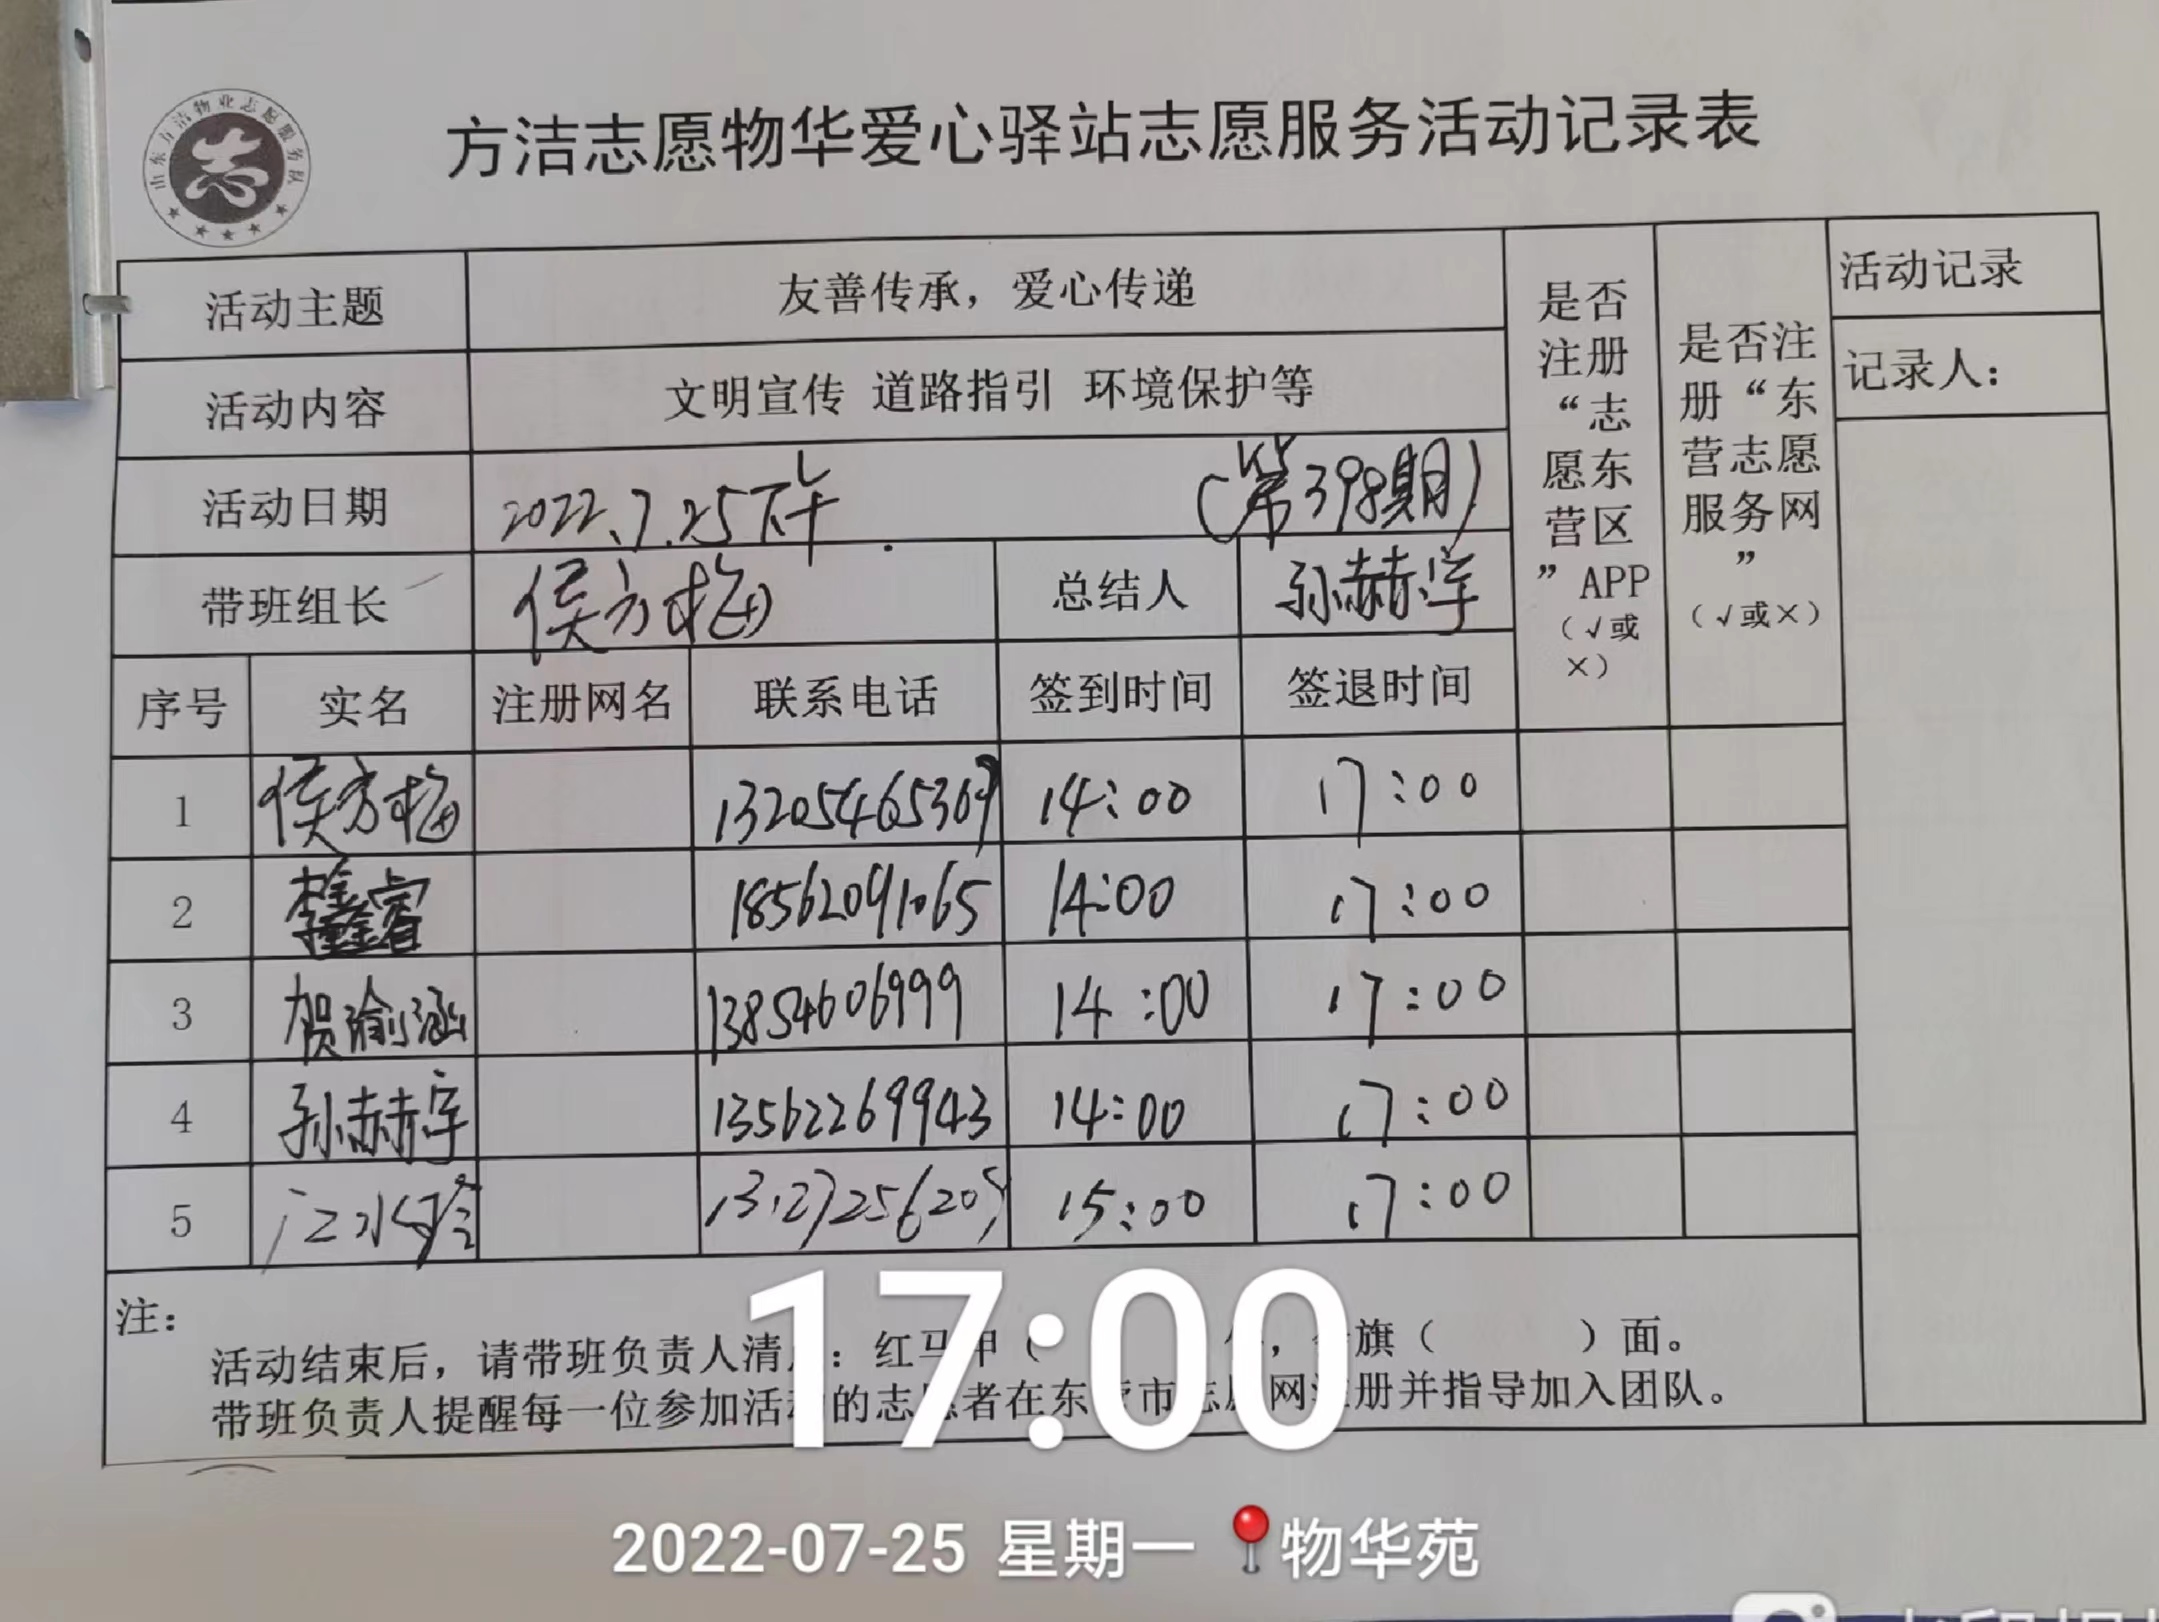 山东方洁物业志愿服务队
志
方洁志愿物华爱心驿站志愿服务活动记录表
活动主题 友善传承，爱心传递
活动内容 文明宣传 道路指引 环境保护等
活动日期 2022.7.25下午 （第398期）
带班组长 侯方梅 总结人 孙赫宇
序号 实名 注册网名 联系电话 签到时间 签退时间
是否
注册
“志
愿东
营区
”APP
（√或
×）
是否注
册“东
营志愿
服务网
”
（√或×）
活动记录
记录人：
1 侯方梅 13205465369 14:00 17:00
2 18562091065 14:00 17:00
3 贺瑜涵 13854606999 14:00 17:00
4 孙赫宇 13562269943 14:00 17:00
5 15:00 17:00
注：
活动结束后，请带班负责人清：红马甲（ ，旗（ ）面。
带班负责人提醒每一位参加活动的志愿者在东营市志愿网注册并指导加入团队。
17:00
2022-07-25 星期一 物华苑